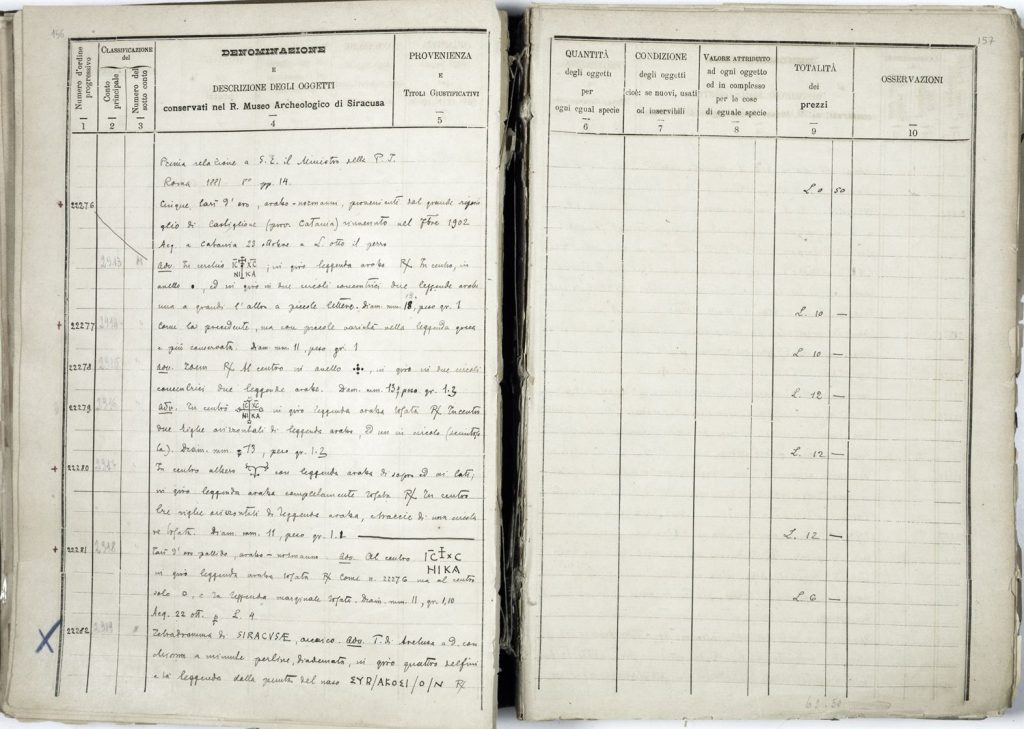 156
Numero d'ordine progressivo
CLASSIFICAZIONE del
Conto principale
Numero del sotto conto
DENOMINAZIONE
E
DESCRIZIONE DEGLI OGGETTI
conservati nel R. Museo Archeologico di Siracusa
PROVENIENZA
E
TITOLI GIUSTIFICATIVI
1 2 3 4 5
relazione a S. E. il Ministro della P. I.
Roma 1881 pp. 14.
22276 Cinque tarì d'oro, arabo-normanni, provenienti dal grande
glio di Castiglione (prov. Catania) rinvenuto nel 7bre 1902
Acq. a Catania 23 ottobre a L. otto il pezzo
2913 Adv. In cerchio IC XC NIKA; in giro leggenda araba R/ In centro, in
anello •, ed in giro in due circoli concentrici due leggende arabe
una a grandi l'altra a piccole lettere. Diam. mm. 18, peso gr. 1
22277 Come la precedente, ma con piccole varietà nella leggenda
e più conservata. Diam. mm. 11, peso gr. 1
22278 Adv. Idem R/ Al centro in anello, in giro in due circoli
concentrici due leggende arabe. Diam. mm. 13, peso gr. 1.2
22279 Adv. In centro IC XC NIKA in giro leggenda araba R/ In centro
due righe orizzontali di leggenda araba, ed un in circolo
Diam. mm. 13, peso gr. 1.2
22280 In centro albero con leggenda araba di sopra ed ai lati;
in giro leggenda araba completamente R/ In centro
tre righe orizzontali di leggenda araba, traccie di una circola
re Diam. mm. 11, peso gr. 1.1
22281 2918 Tarì d'oro pallido, arabo-normanno. Adv. Al centro IC XC
NIKA
in giro leggenda araba R/ Come n. 22276 ma al centro
solo o, e la leggenda marginale Diam. mm. 11, gr. 1,10
Acq. 22 ott. p L. 4
X 22282 2919 Tetradramma di SIRACUSÆ, arcaico. Adv. T. di Aretusa a D. con
chioma a minute perline, diademata, in giro quattro delfini
e la leggenda dalla punta del naso ΣΥR/AKOΣI/O/N R/
157
QUANTITÀ
degli oggetti
per
ogni egual specie
CONDIZIONE
degli oggetti
cioè: se nuovi, usati
od inservibili
VALORE ATTRIBUITO
ad ogni oggetto
ed in complesso
per le cose
di eguale specie
TOTALITÀ
dei
prezzi
OSSERVAZIONI
6 7 8 9 10
L. 0 50
L. 10 —
L. 10 —
L. 12 —
L. 12 —
L. 12 —
L. 6 —
62.50